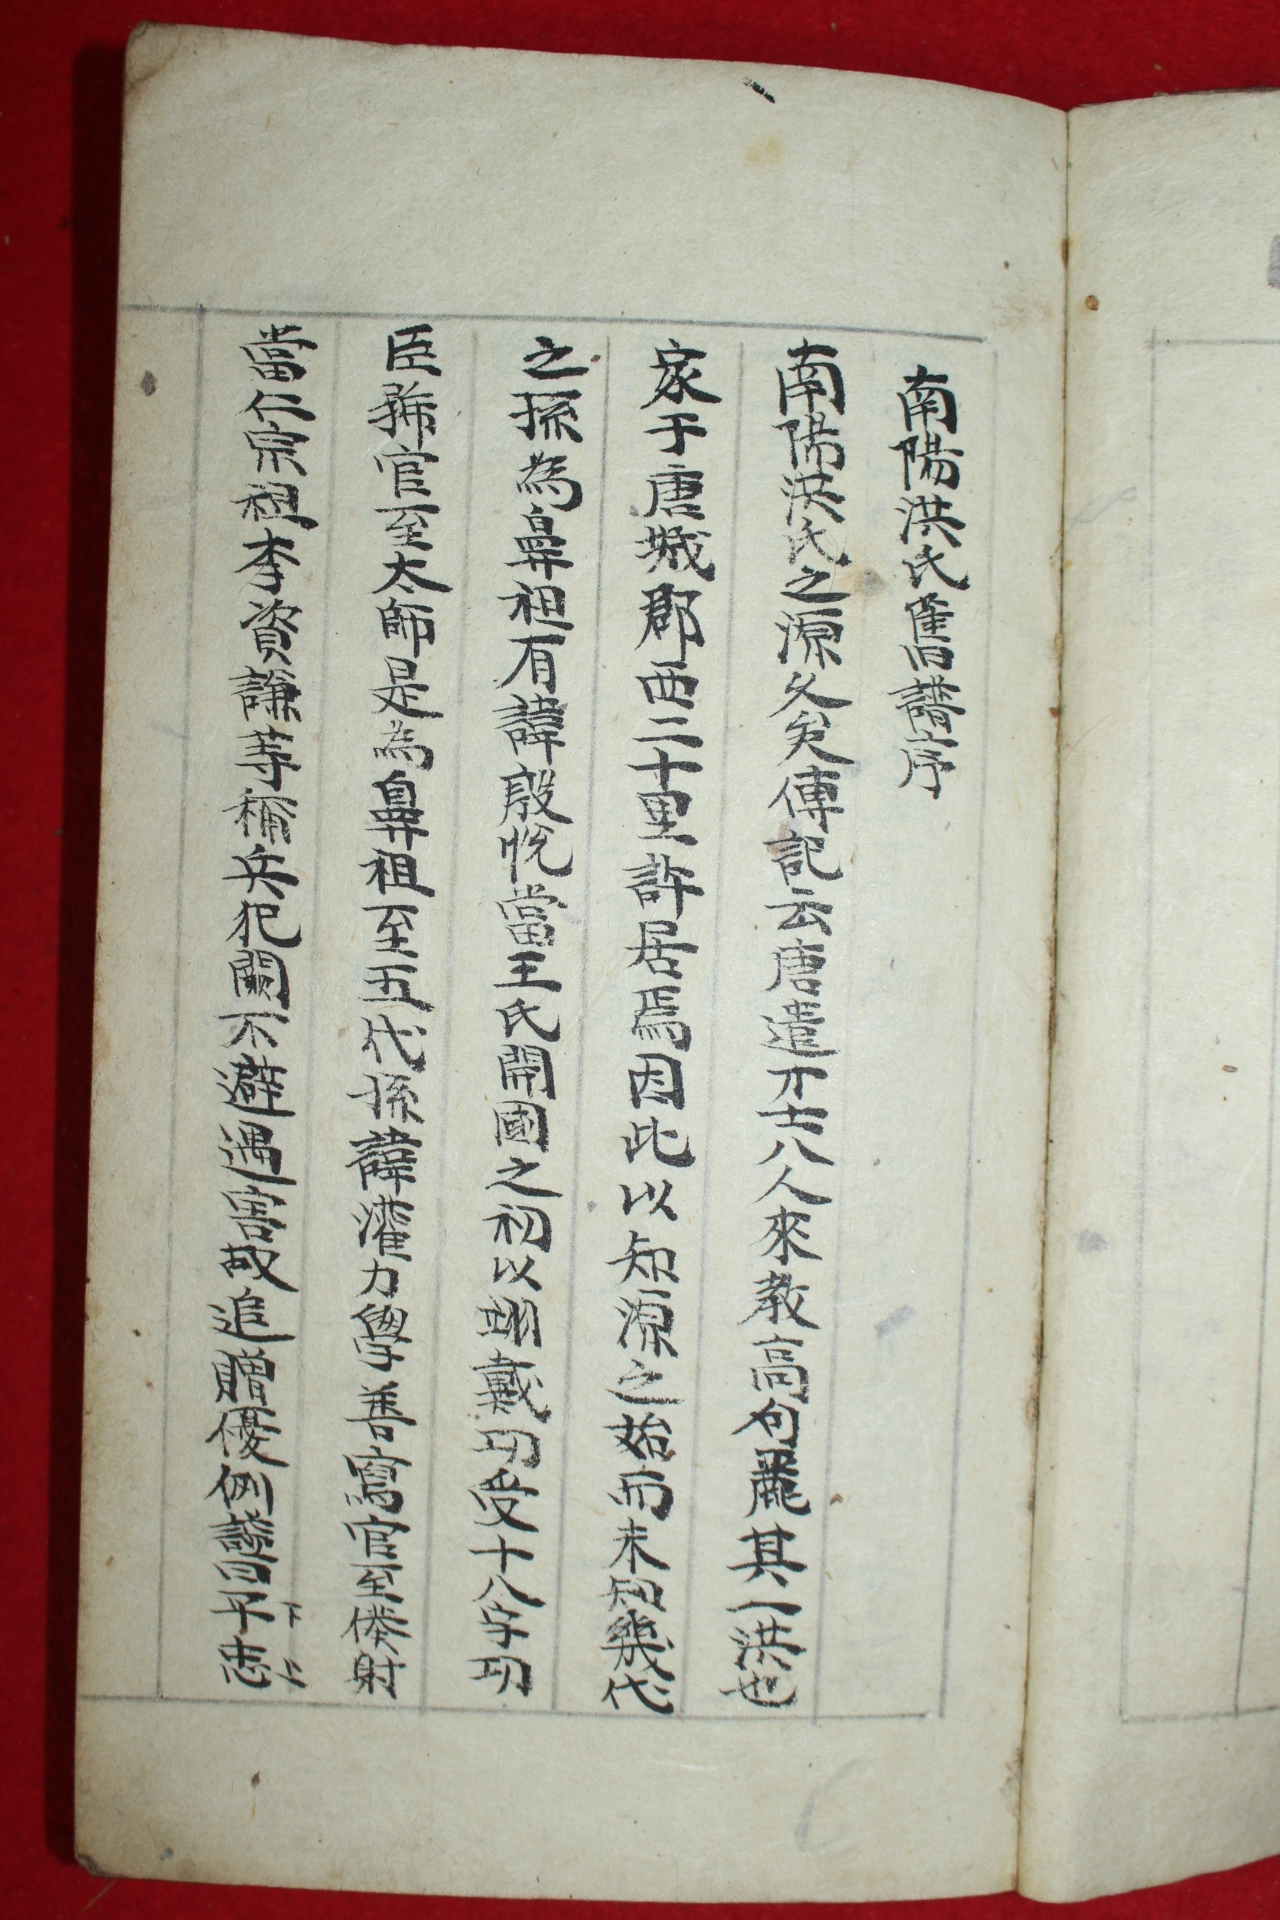 南陽洪氏舊譜序
南陽洪氏之源久矣傳記云唐遣才士八人來教高句麗其一洪也
家于唐城郡西二十里許居焉因此以知源之始而未知幾代
之孫為鼻祖有諱殷悅當王氏開國之初以翊戴功受十八字功
臣號官至太師是為鼻祖至五代孫諱灌力學善寫官至僕射
當仁宗祖李資謙等稱兵犯闕不避遇害故追贈優例諡曰平忠
下上